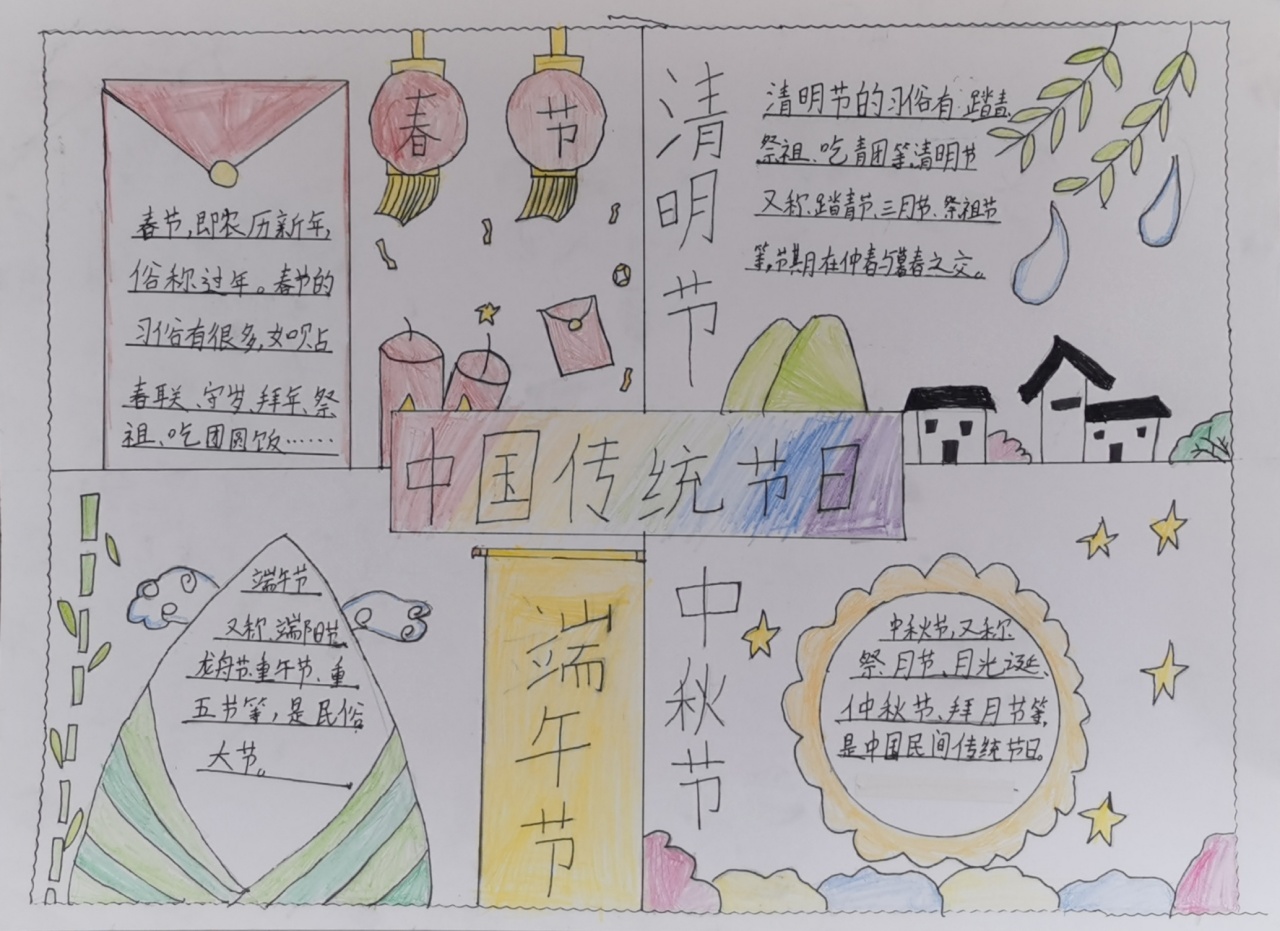 春节
春节,即农历新年,
俗称过年。春节的
习俗有很多,如贴
春联、守岁、拜年、祭
祖、吃团圆饭……
清明节
清明节的习俗有踏青、
祭祖、吃青团等,清明节
又称、踏青节、三月节、祭祖节
等,节期在仲春与暮春之交。
中国传统节日
端午节
又称、端阳节、
龙舟节、重午节、重
五节等,是民俗
大节。
端午节
中秋节
中秋节,又称
祭月节、月光诞、
仲秋节、拜月节等,
是中国民间传统节日。